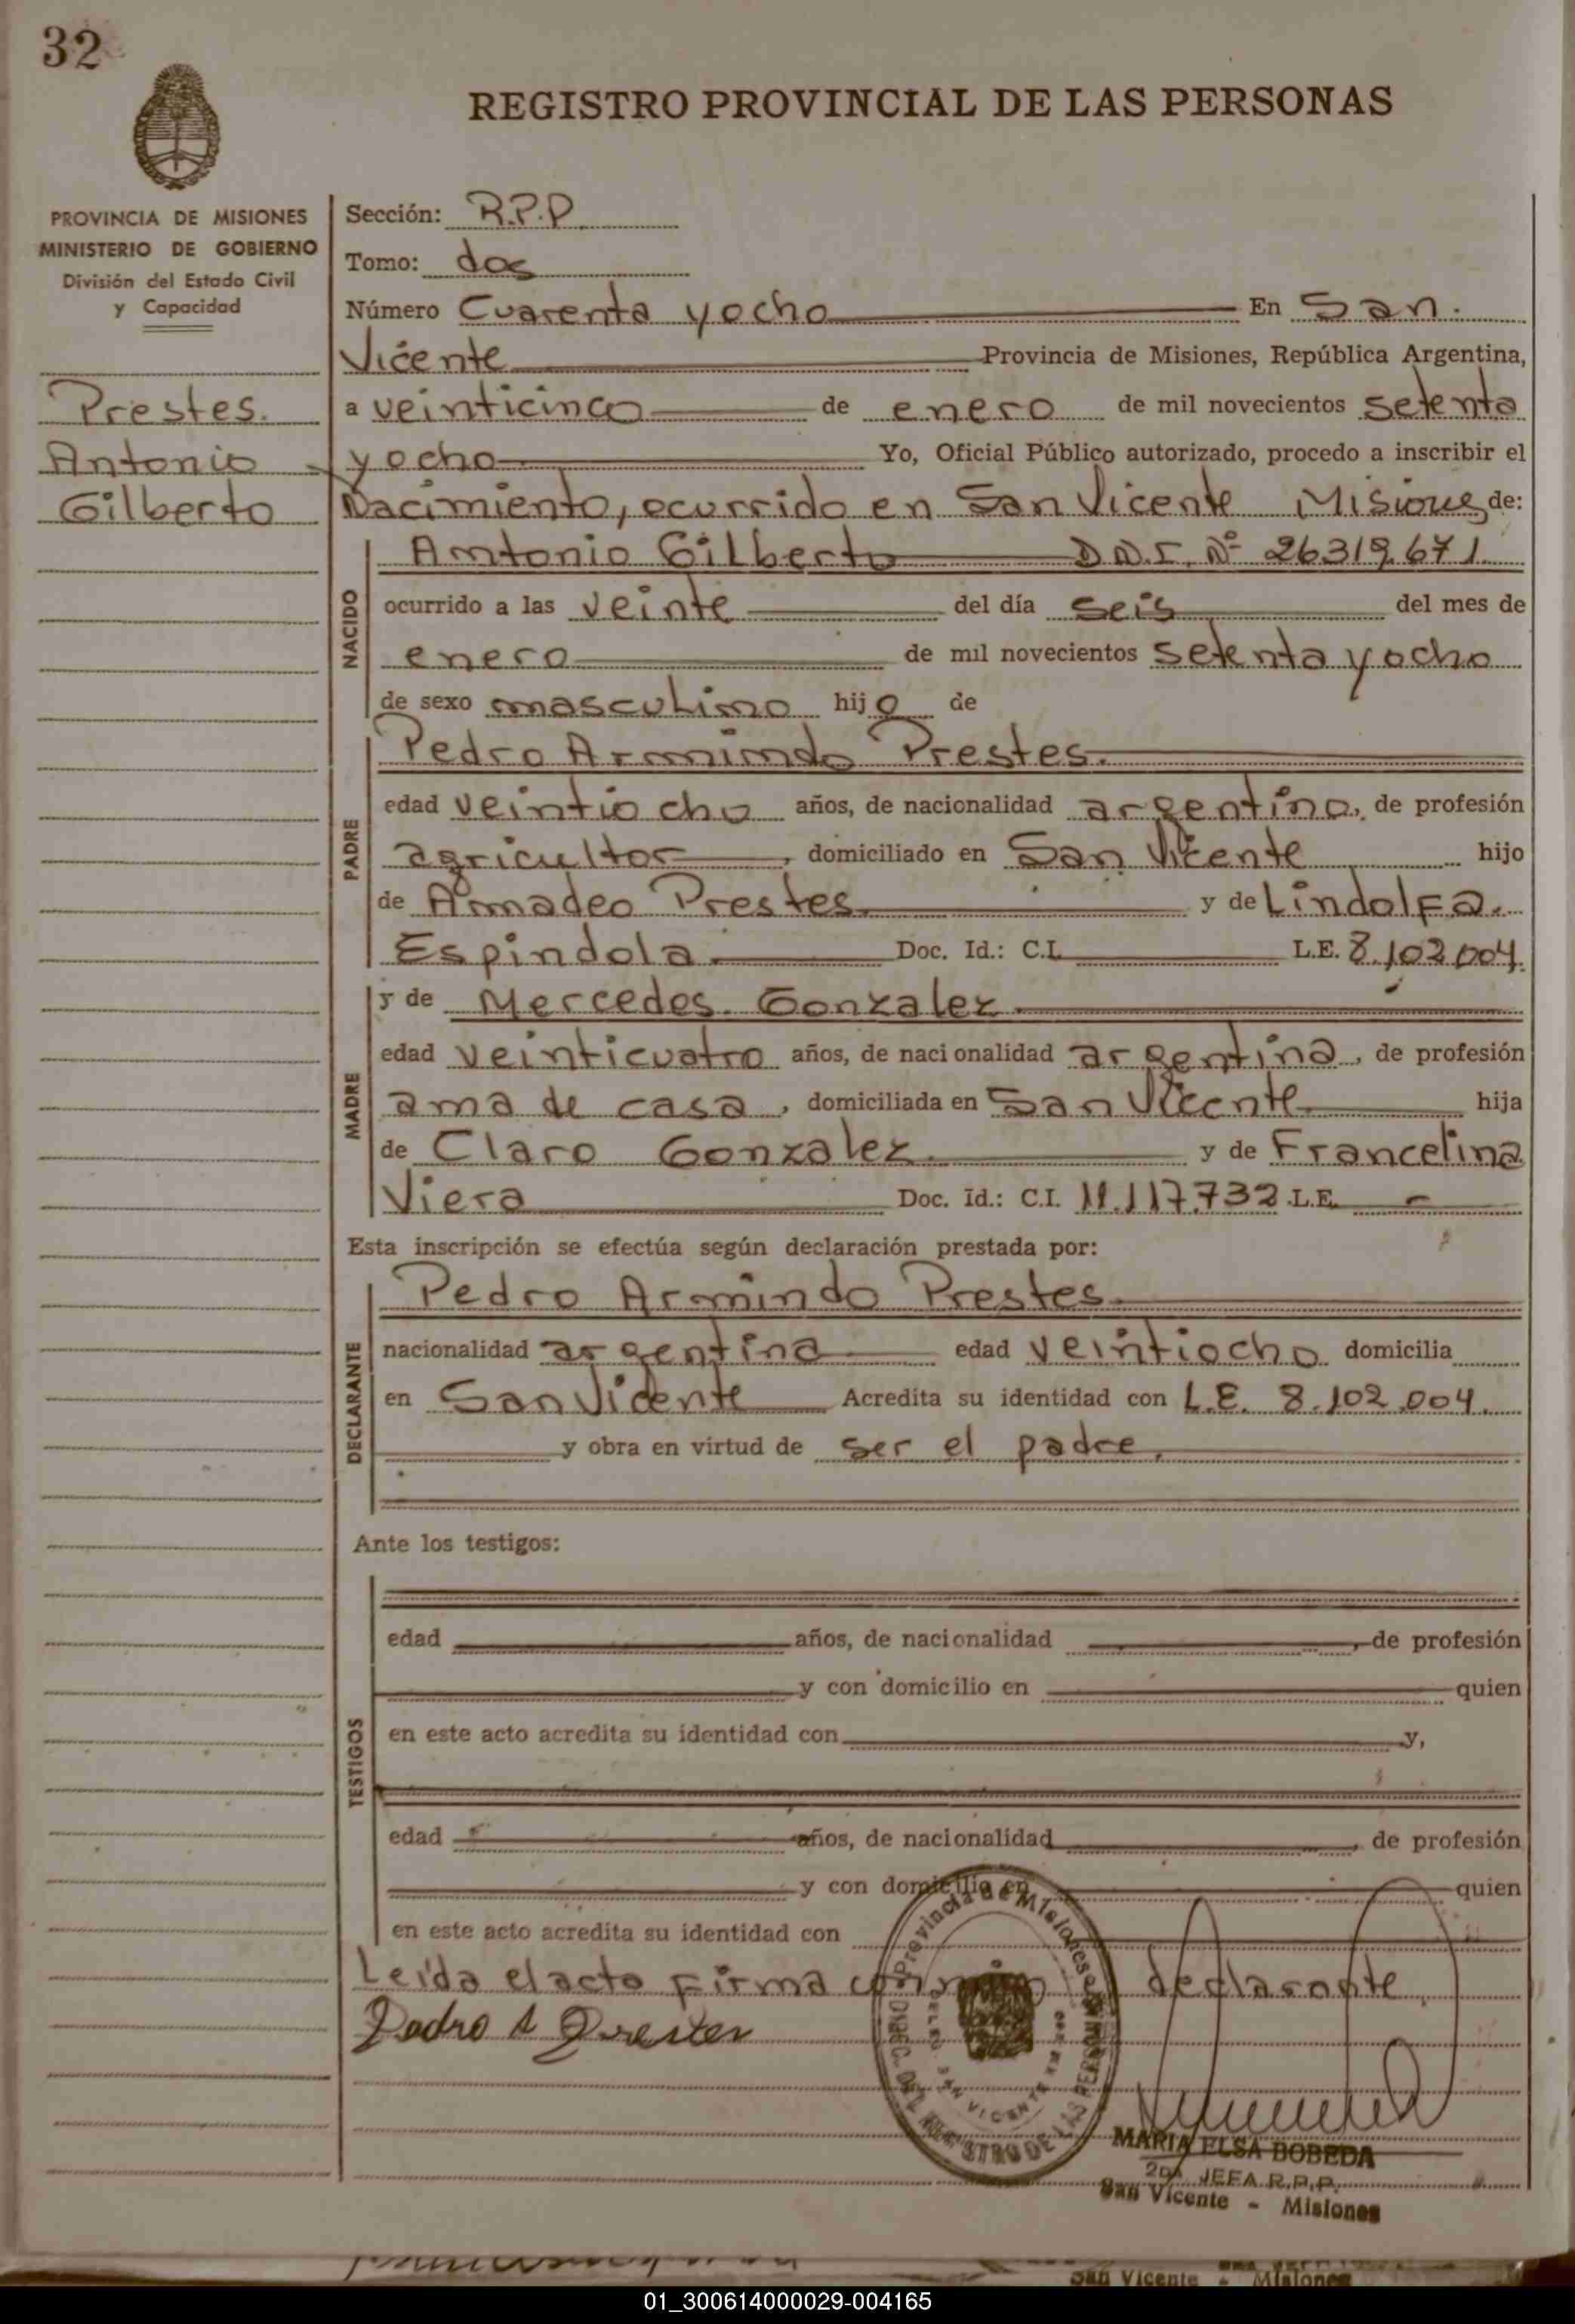 32
REGISTRO PROVINCIAL DE LAS PERSONAS
PROVINCIA DE MISIONES
MINISTERIO DE GOBIERNO
División del Estado Civil
y Capacidad
Prestes.
Antonio
Gilberto
Sección: R.P.P
Tomo: dos
Número Cuarenta y ocho En San
Vicente Provincia de Misiones, República Argentina,
a veinticinco de enero de mil novecientos setenta
y ocho Yo, Oficial Público autorizado, procedo a inscribir el
Nacimiento, ocurrido en San Vicente Misiones de:
NACIDO
Antonio Gilberto D.N.I. Nº 26319.671
ocurrido a las veinte del día seis del mes de
enero de mil novecientos setenta y ocho
de sexo masculino hijo de
PADRE
Pedro Armindo Prestes.
edad veintiocho años, de nacionalidad argentino, de profesión
agricultor, domiciliado en San Vicente hijo
de Amadeo Prestes y de Lindolfa.
Espindola. Doc. Id.: C.I. L.E. 8.102.004.
MADRE
y de Mercedes Gonzalez.
edad veinticuatro años, de nacionalidad argentina, de profesión
ama de casa, domiciliada en San Vicente hija
de Claro Gonzalez. y de Francelina
Viera Doc. Id.: C.I. 11.117.732 L.E. -
Esta inscripción se efectúa según declaración prestada por:
DECLARANTE
Pedro Armindo Prestes.
nacionalidad argentina edad veintiocho domicilia
en San Vicente Acredita su identidad con L.E. 8.102.004.
y obra en virtud de ser el padre.
Ante los testigos:
TESTIGOS
edad años, de nacionalidad , de profesión
y con domicilio en quien
en este acto acredita su identidad con y,
edad años, de nacionalidad , de profesión
y con domicilio en quien
en este acto acredita su identidad con
Leida el acto firma conmigo declarante.
Pedro A Prestes
Provincia de Misiones
DIREC. DEL REGISTRO DE LAS PERSONAS
SAN VICENTE
MARIA ELSA BOBEDA
2da JEFA R.P.P.
San Vicente - Misiones
San Vicente - Misiones
01_300614000029-004165